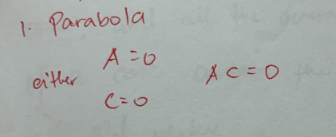 1. Parabola
A = 0
either AC = 0
C = 0